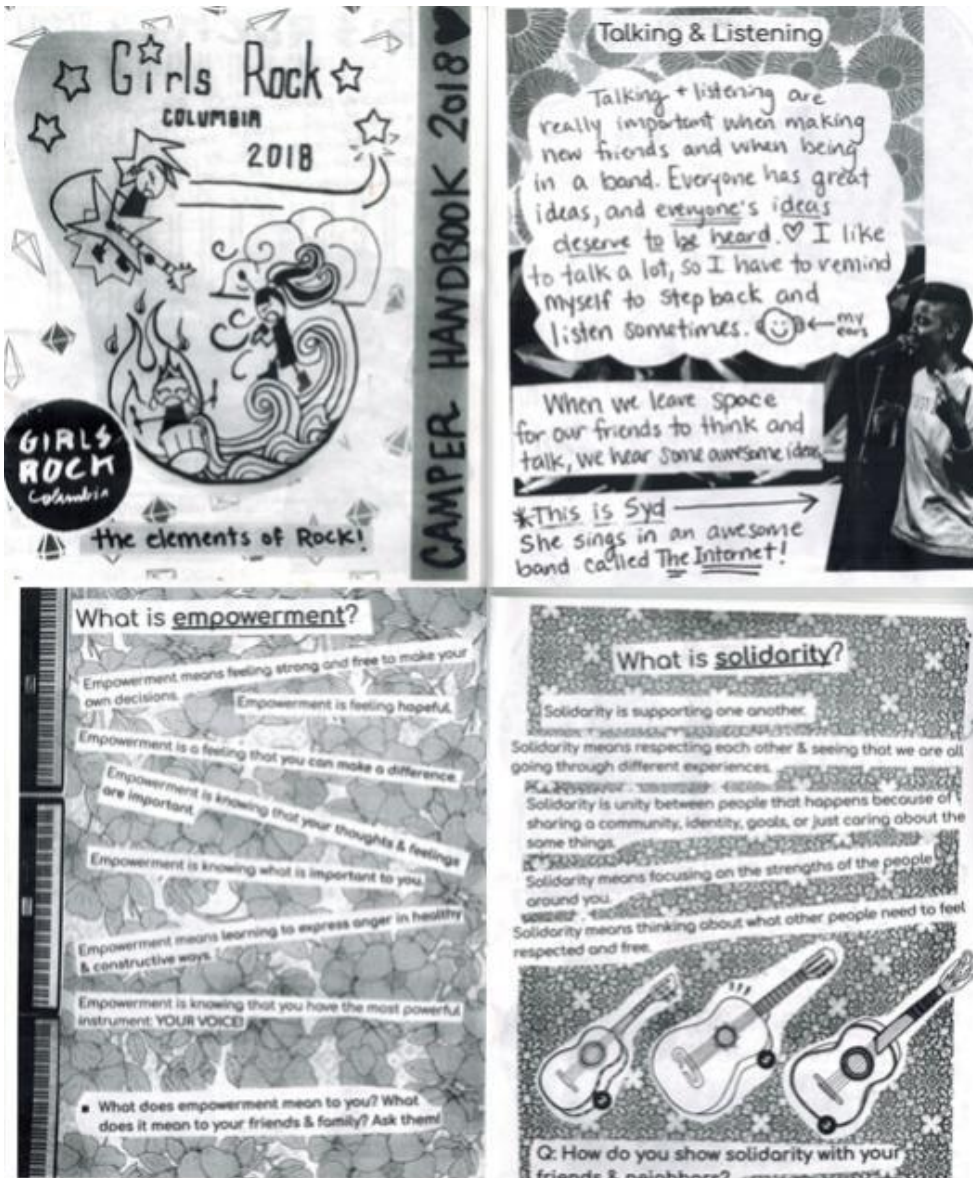 Girls Rock
COLUMBIA
2018
GIRLS
ROCK
Columbia
the elements of Rock!
CAMPER HANDBOOK 2018
Talking & Listening
Talking + listening are
really important when making
new friends and when being
in a band. Everyone has great
ideas, and everyone's ideas
deserve to be heard. ♡ I like
to talk a lot, so I have to remind
myself to step back and
listen sometimes.
my
ears
When we leave space
for our friends to think and
talk, we hear some awesome ideas
*This is Syd
She sings in an awesome
band called The Internet!
What is empowerment?
Empowerment means feeling strong and free to make your
own decisions.
Empowerment is feeling hopeful.
Empowerment is a feeling that you can make a difference.
Empowerment is knowing that your thoughts & feelings
are important.
Empowerment is knowing what is important to you.
Empowerment means learning to express anger in healthy
& constructive ways.
Empowerment is knowing that you have the most powerful
instrument: YOUR VOICE!
▪ What does empowerment mean to you? What
does it mean to your friends & family? Ask them!
What is solidarity?
Solidarity is supporting one another.
Solidarity means respecting each other & seeing that we are all
going through different experiences.
Solidarity is unity between people that happens because of
sharing a community, identity, goals, or just caring about the
same things.
Solidarity means focusing on the strengths of the people
around you.
Solidarity means thinking about what other people need to feel
respected and free.
Q: How do you show solidarity with your
friends & neighbors?